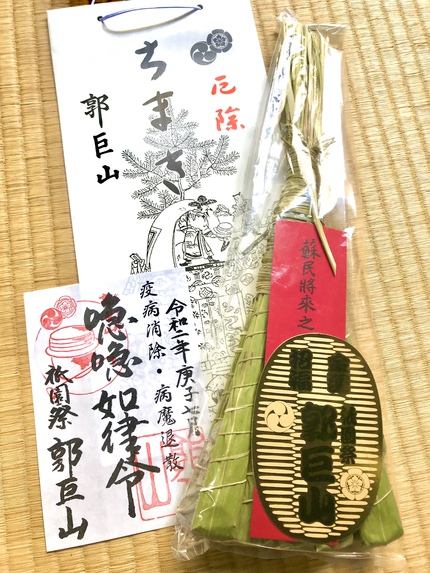 厄除
ちまき
郭巨山
令和二年庚子七月
疫病消除・病魔退散
喼喼如律令
祇園祭 郭巨山
蘇民將來之
招福
祇園祭
郭巨山